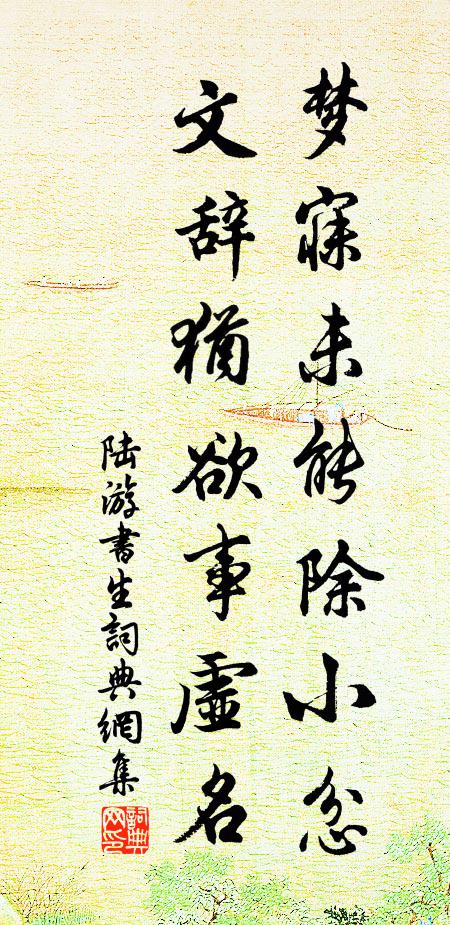 梦寐未能除小忿
文辞犹欲事虚名
陆游书生詞典網集
詞典网印